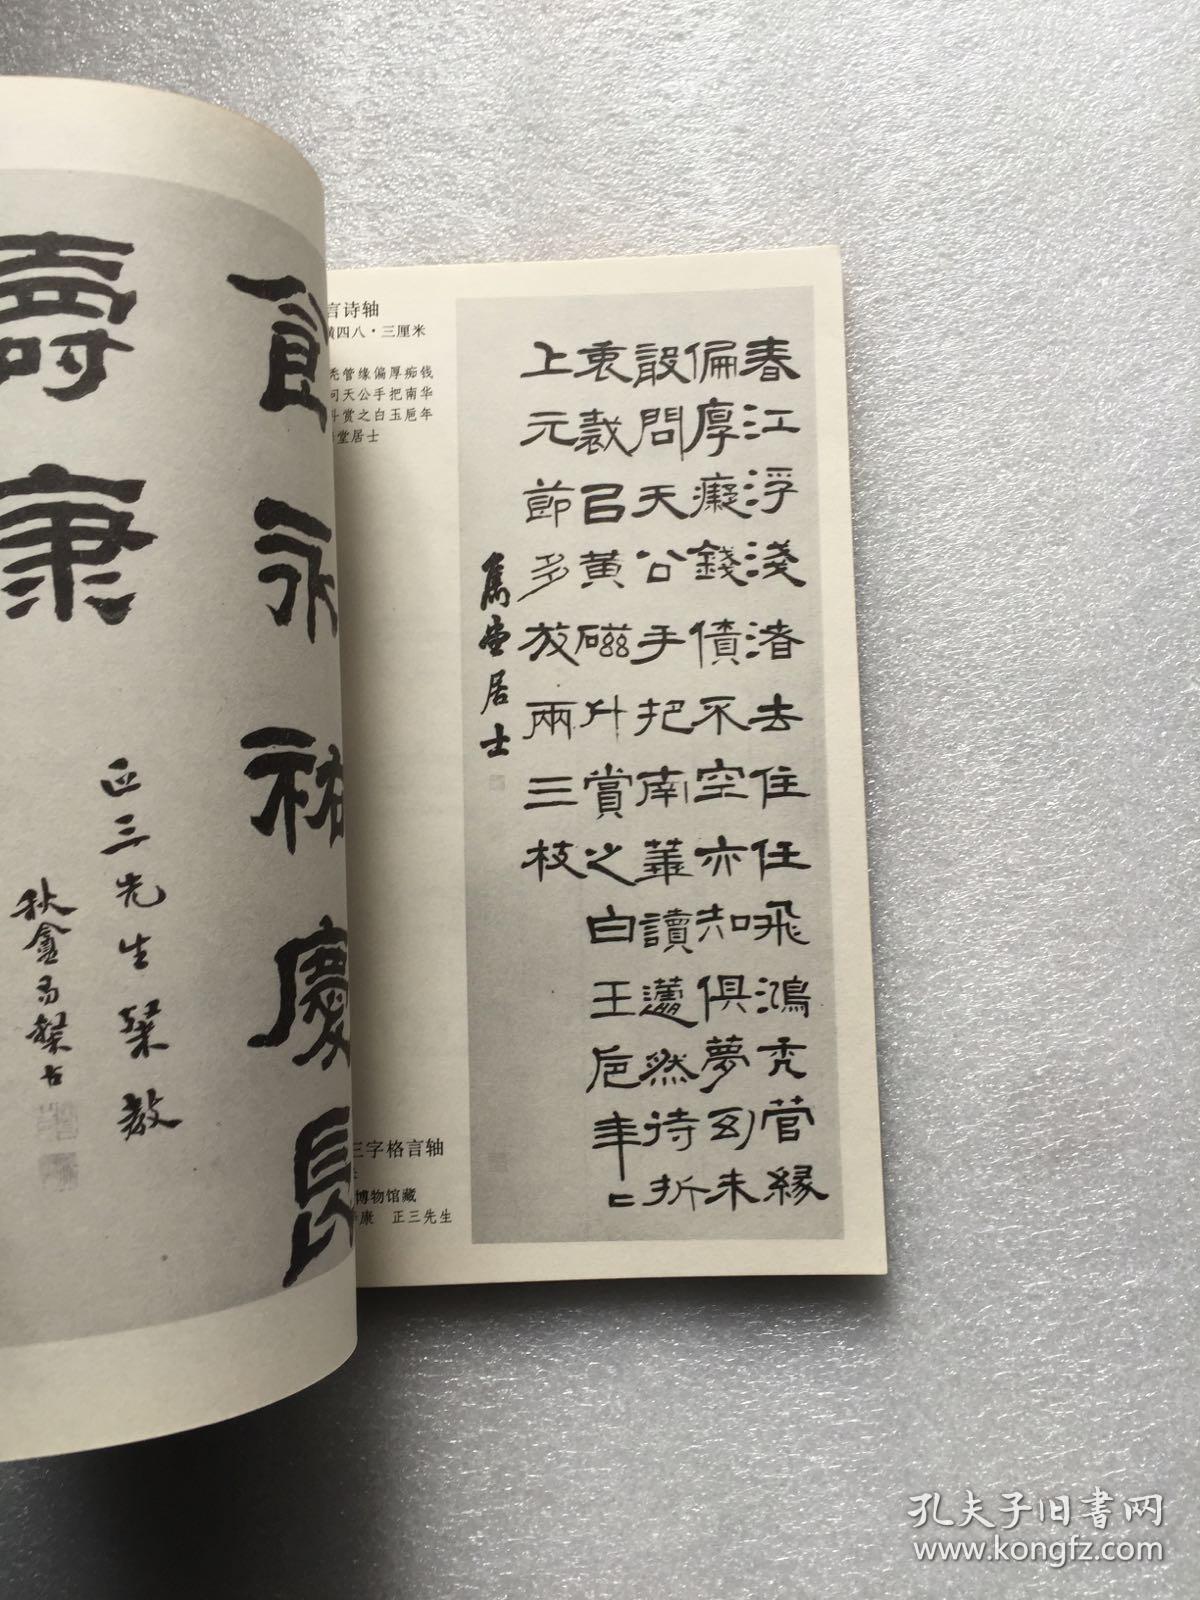 春江浮淺渚去住任飛鴻禿管緣
偏厚癡錢債不空亦知俱夢幻未
設問天公手把南華讀蘧然待折
衷裁㠯黃磁斗賞之白玉卮年
上元節多放兩三枝
堂居士
言诗轴
横四八·三厘米
秃管缘偏厚痴钱
可天公手把南华
斗赏之白玉卮年
堂居士
三字格言轴
博物馆藏
康 正三先生
永祐慶長
壽康
正三先生 教
秋盦易
孔夫子旧书网
www.kongfz.com